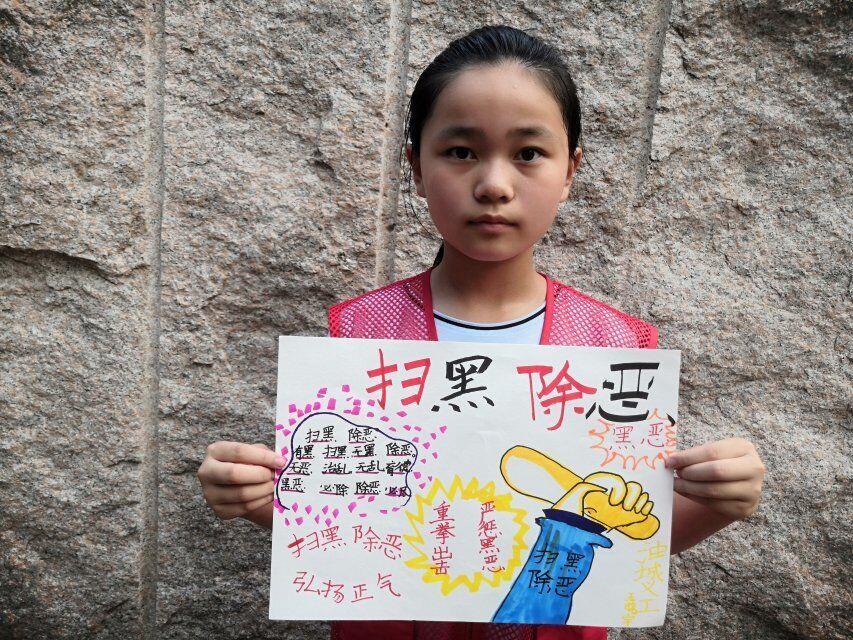 扫黑 除恶
黑恶
扫黑 除恶
有黑 扫黑 无黑 除恶
无恶 治乱 无乱
是恶 必除 除恶 必尽
重拳出击
严惩黑恶
扫黑
除恶
扫黑 除恶
弘扬正气
油城义工